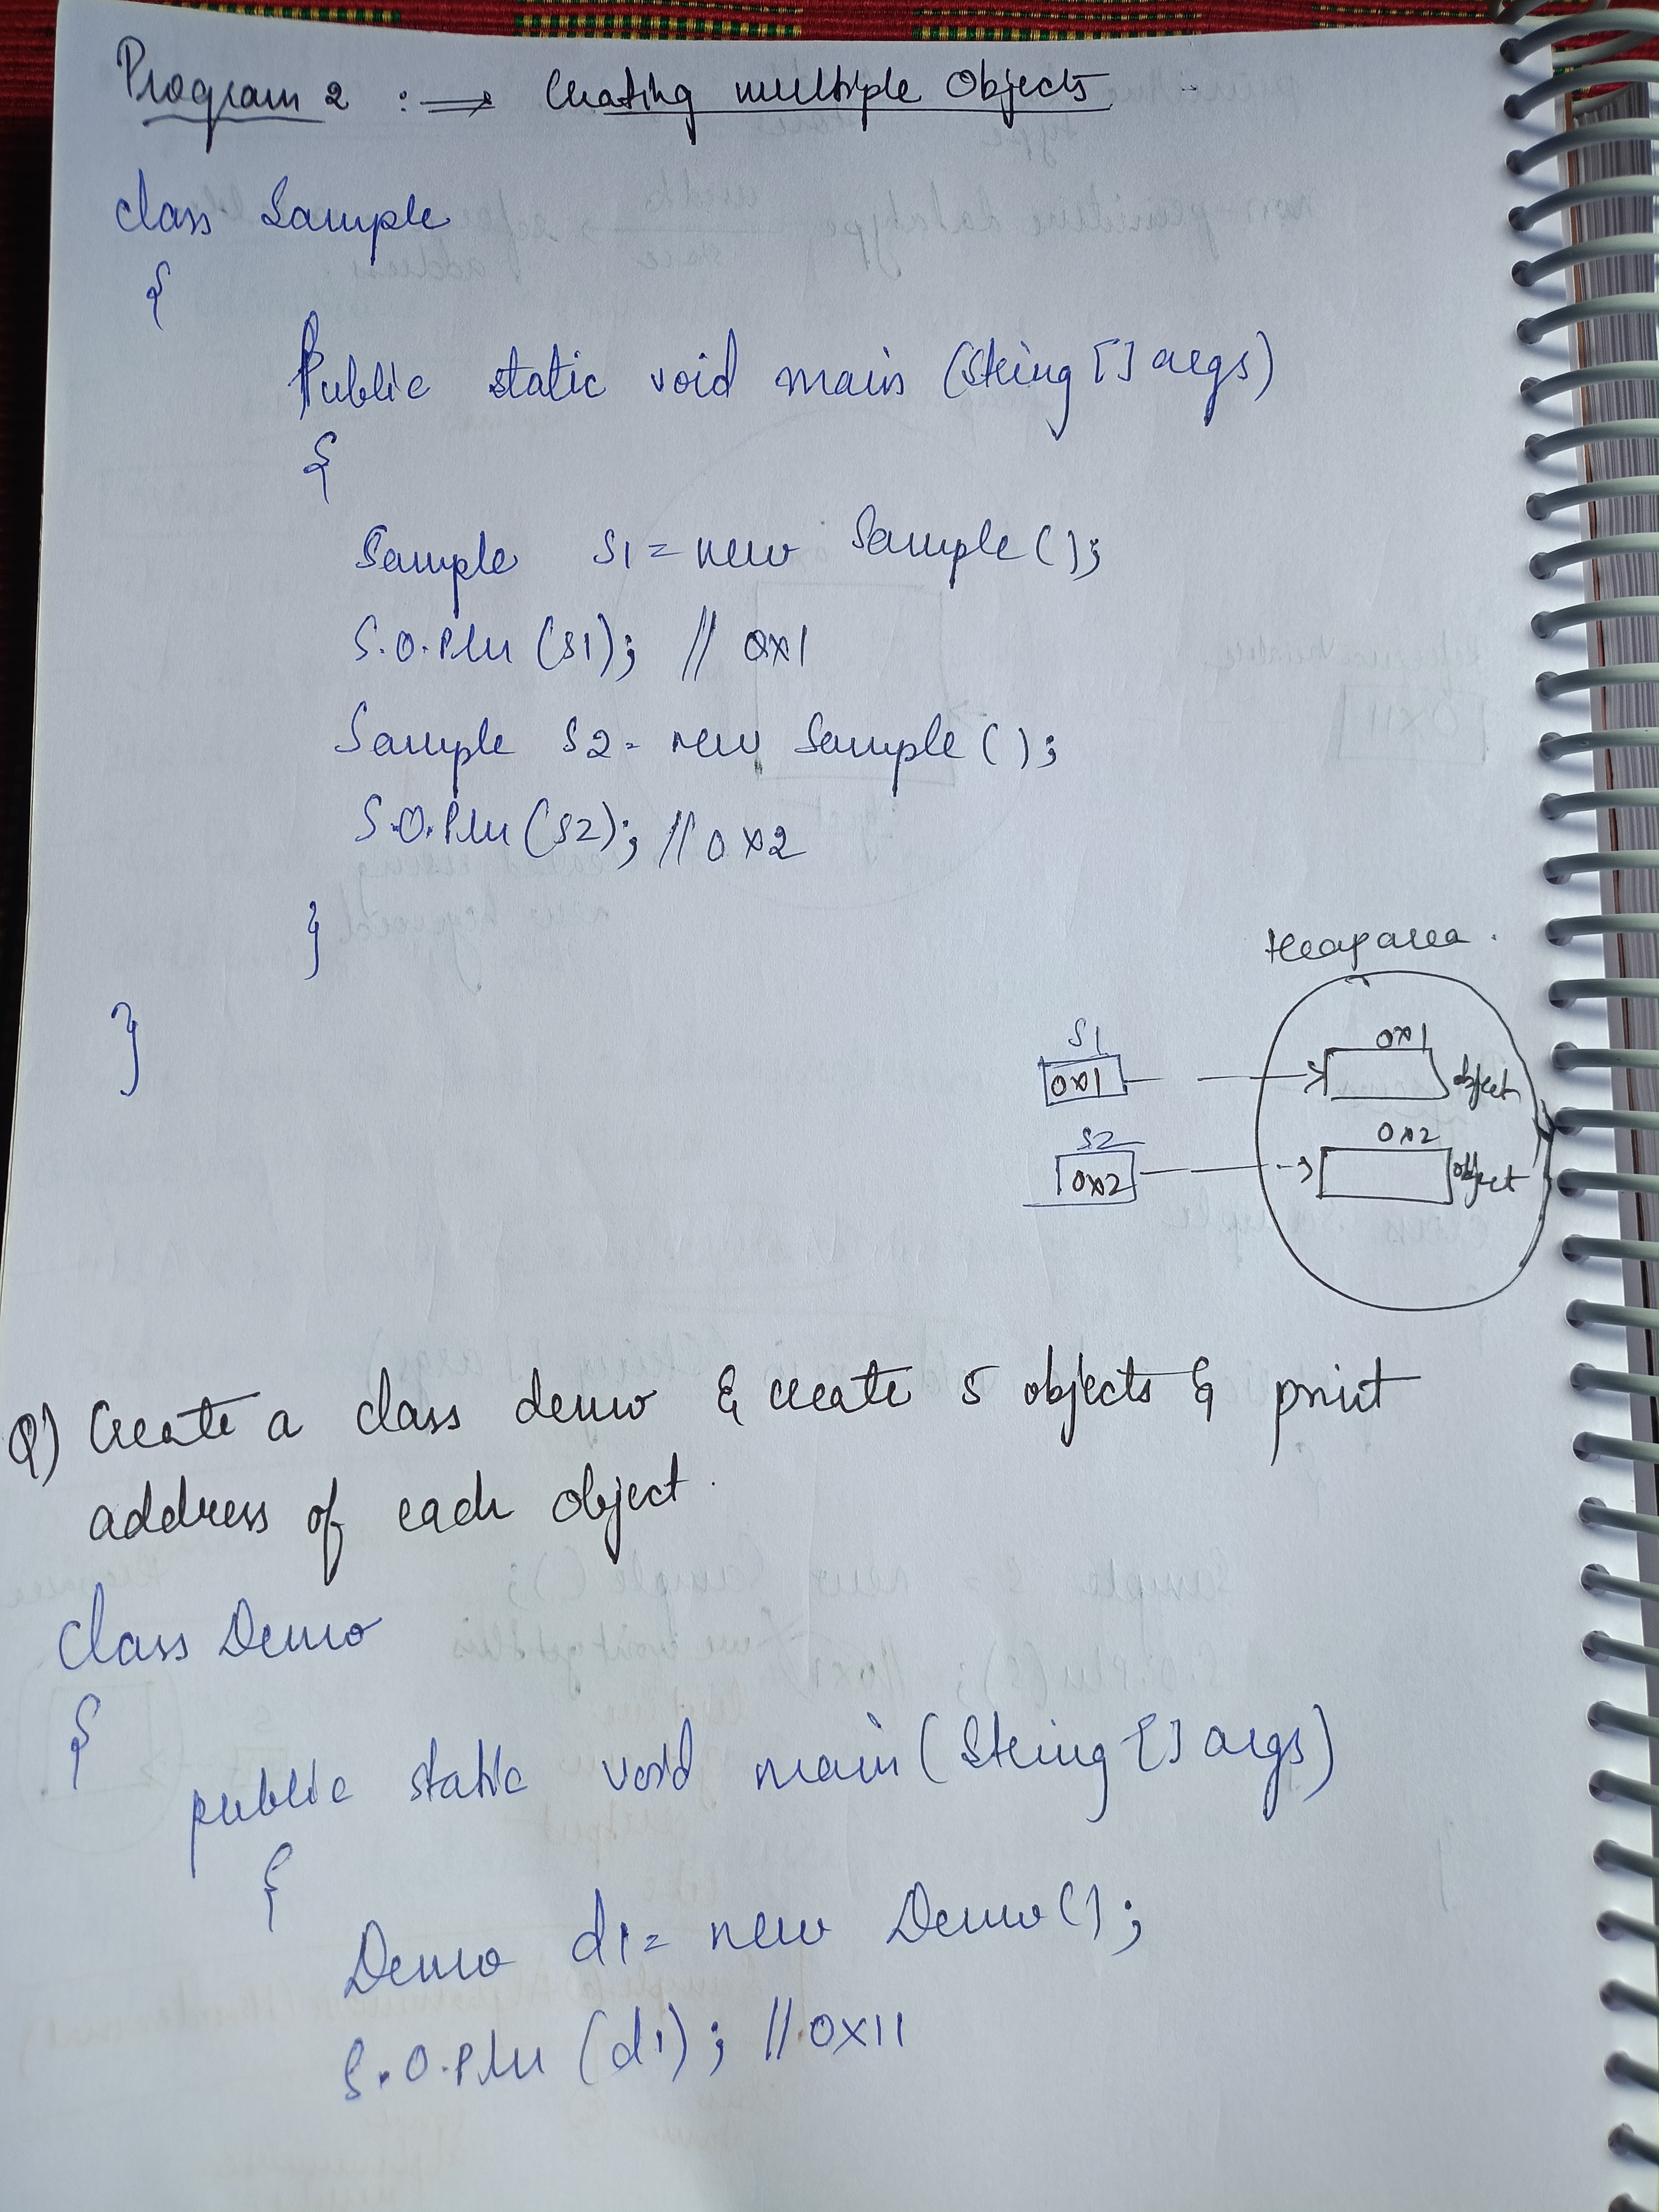 Program 2 :⇒ Creating multiple Objects
class Sample
{
Public static void main (String [] args)
{
Sample S1 = new Sample ( );
S.O.Pln (S1); // 0x1
Sample S2 = new Sample ( );
S.O.Pln (S2); // 0x2
}
}
Heap area.
S1
0x1
0x1
object
S2
0x2
0x2
object
Q) Create a class demo & create 5 objects & print
address of each object.
class Demo
{
public static void main (String [] args)
{
Demo d1 = new Demo ( );
S.O.Pln (d1); // 0x11